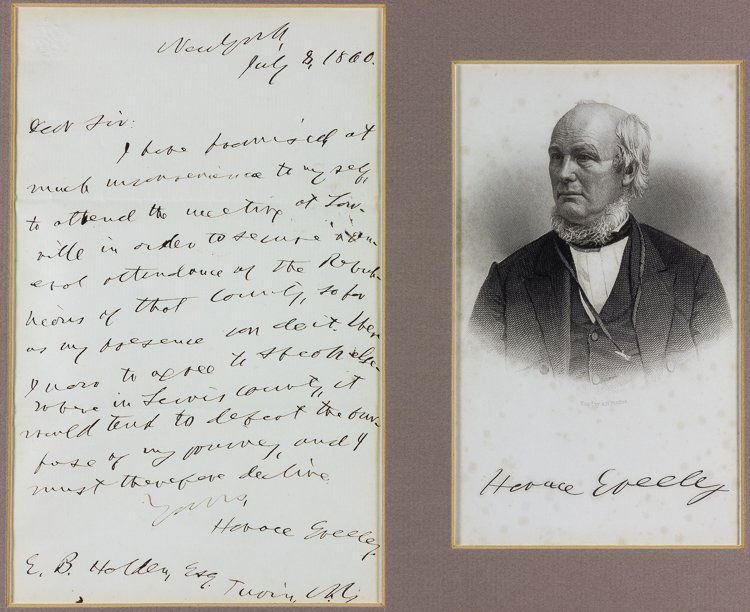 New York,
July 2, 1860.
Dear Sir:
I have promised, at
much inconvenience to myself,
to attend the meeting at Low-
ville in order to secure a gen-
eral attendance of the Repub-
licans of that County, so far
as my presence can do it. Were
I now to agree to speak else-
where in Lewis County, it
would tend to defeat the pur-
pose of my journey, and I
must therefore decline.
Yours,
Horace Greeley.
E. B. Holden, Esq.
Turin, N.Y.
Horace Greeley